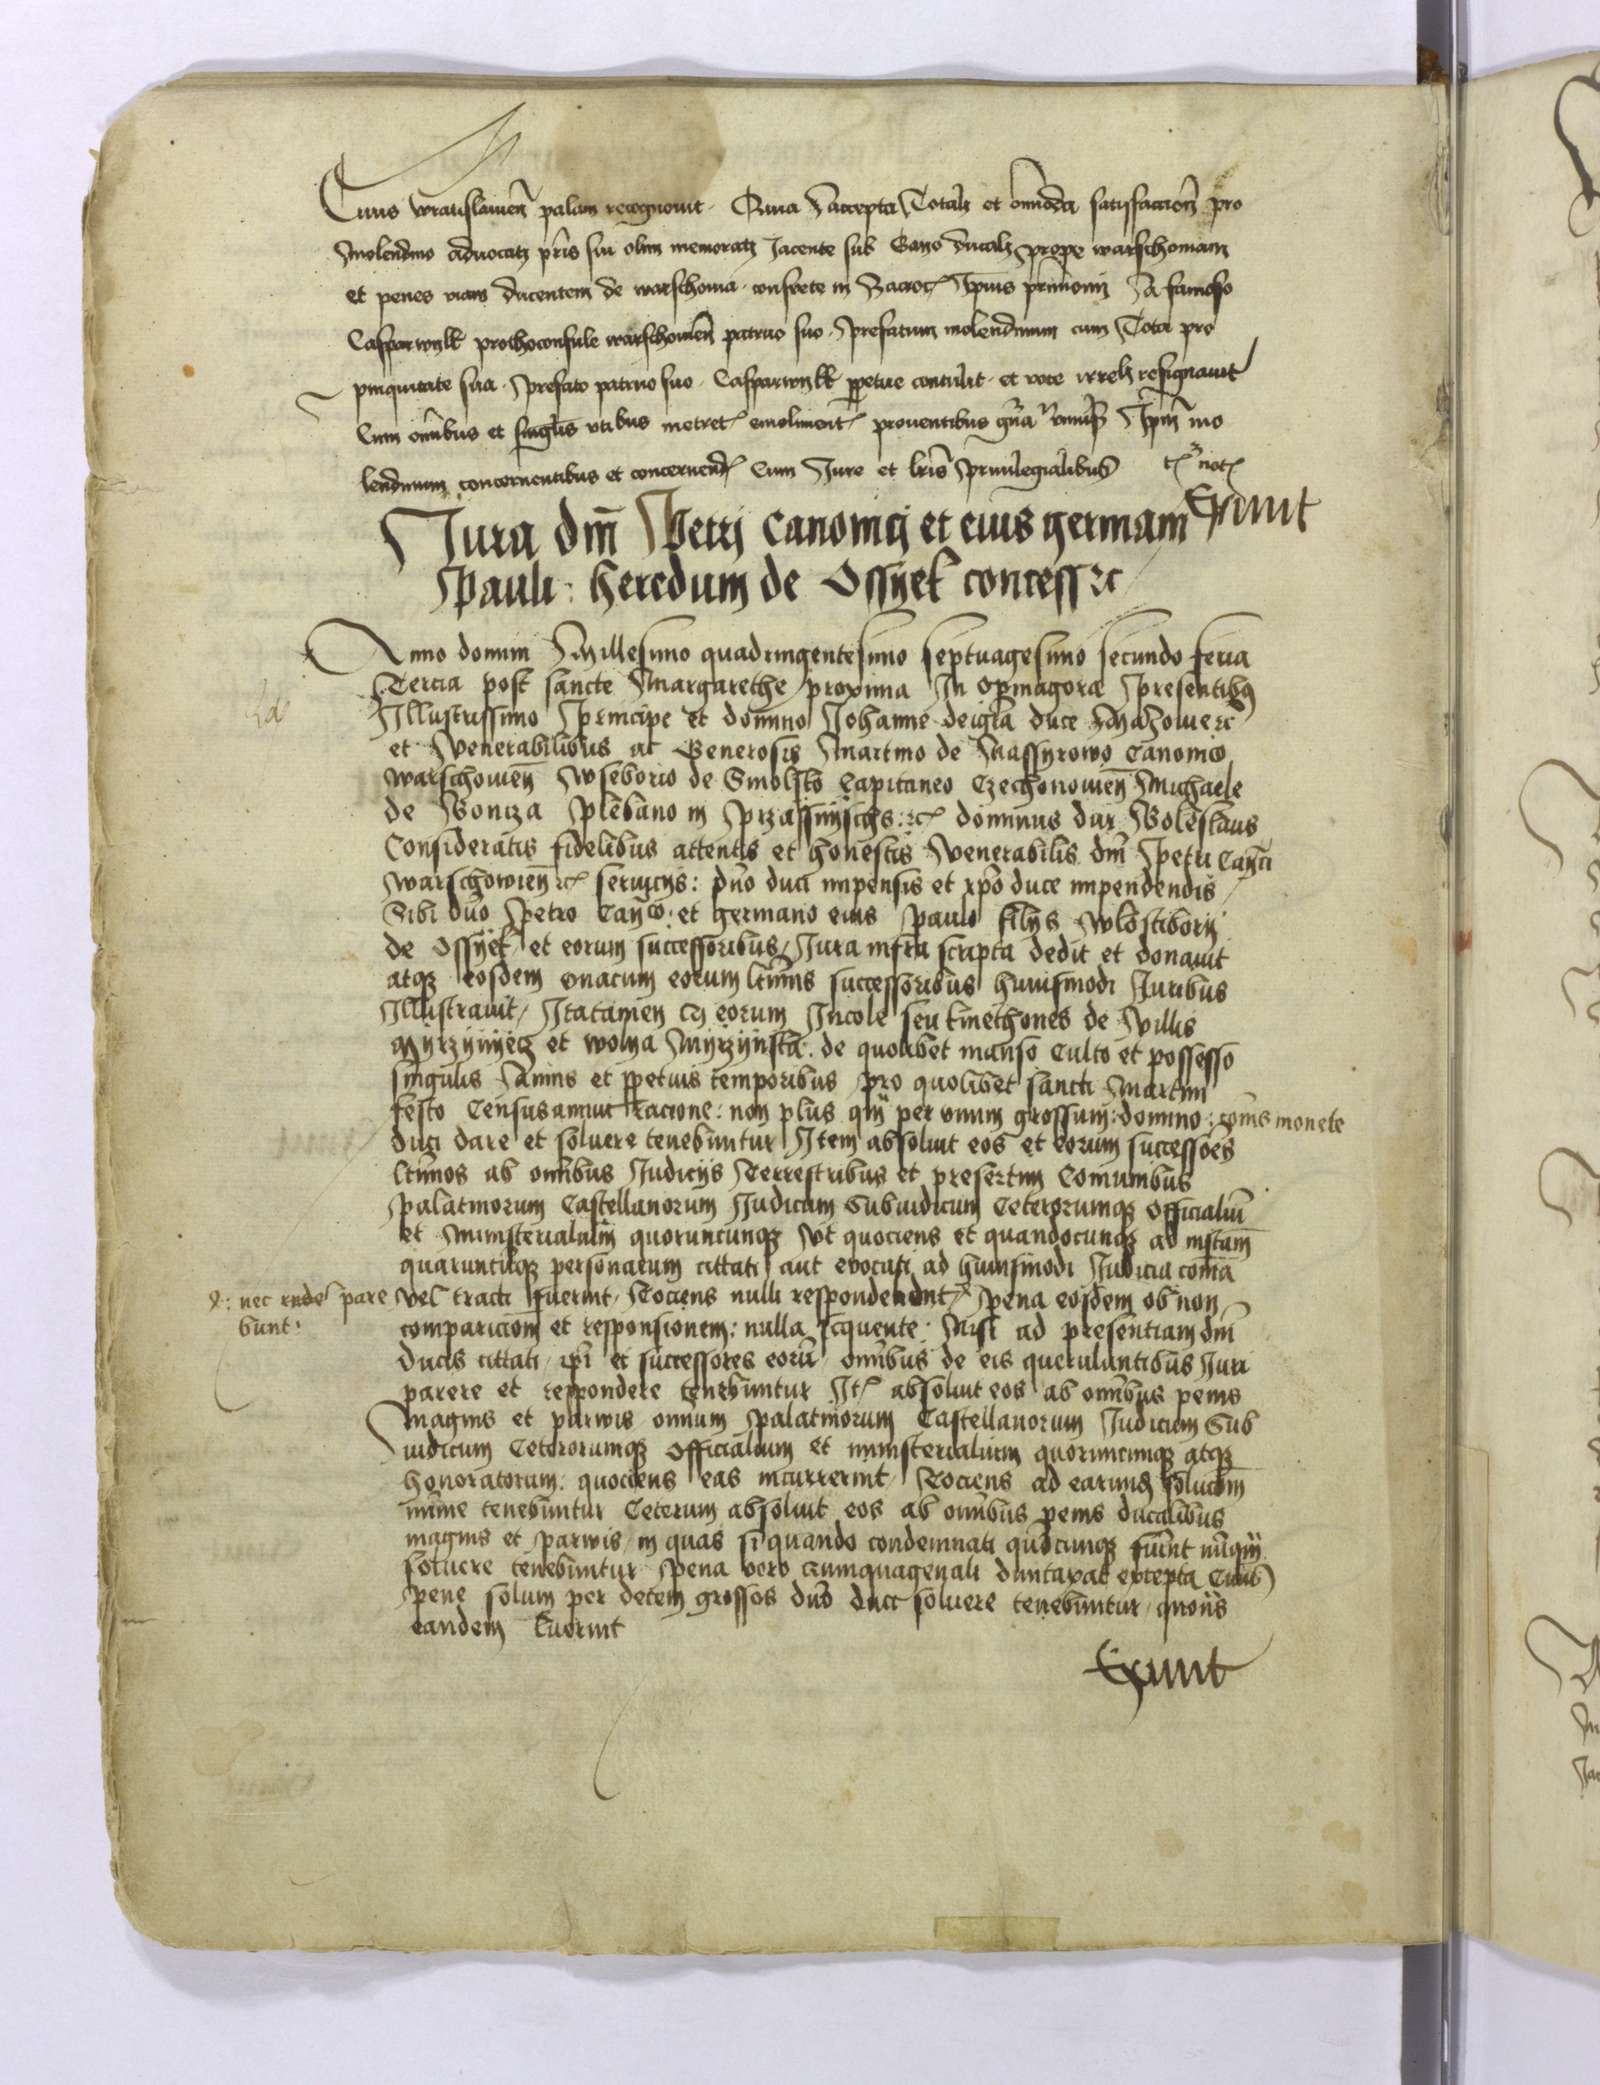 Ciuis wratislauien̄ palam recognouit Quia accepta Totali et omnioda satisfaccioñ pro
molendino aduocati pr̄is sui olim memorati Jacente sub Gayo ducali prope warschouiam
et penes viam ducentem de warschouia famoso
Casparwylk prothoconsule warschouien̄ patruo suo prefatum molendinum cum Tota pro
pinquitate sua prefato patruo suo Casparwylk ꝑpetue contulit et resignauit
Cum om̄ibus et singlis vtibus metret emoliment prouentibus mo
lendinum concernentibus et concernend Cum Jure et lr̄is priuilegialibus
Exiuit
Jura dnī Petri Canonici et eius germani
Pauli heredum de Ossyek concess ꝛc
Anno domini Millesimo quadringentesimo septuagesimo secundo feria
Tercia post sancte Margarethe proxima In Opinagora presentibus
Illustrissimo Principe et domino Johanne deigr̄a duce Mazouie ꝛc
et Venerabilibus ac Generosis Martino de Nassyrowo Canonico
warschouien̄ Wseborio de Smolsko Capitaneo Czechonouien̄ Michaele
de Boniza plebano in Przassnyschs ꝛc dominus dux Boleslaus
Consideratis fidelibus attentis et honestis Venerabilis dnī Petri Can̄ci
warschowien̄ ꝛc seruicijs: dn̄o duci impensis et duce impendendis
Sibi dn̄o Petro Can̄co et germano eius Paulo filijs Wlostiborij
de Ossyek et eorum successoribus Jura infra scripta dedit et donauit
atqȝ eosdem vnacum eorum ltimis successoribus huiusmodi Juribus
Illustrauit Itatamen eorum Incole seu kmethones de Villis
Myrzynyecz et wolya Myrzynska: de quolibet manso Culto et possesso
singulis Annis et ꝑpetuis temporibus pro quolibet sancti Martini
festo Census annui racione: non plus per vnum grossum: domino: com̄is monete
duci dare et soluere tenebuntur Item absoluit eos et eorum successoēs
ltimos ab om̄ibus Judicijs Terrestribus et presertim Comunibus
Palatinorum Castellanorum Judicum Subiudicum Ceterorumqȝ Officialiū
et Ministerialiūm quoruncunqȝ Vt quociens et quandocunqȝ ad instam̄
quaruncūqȝ personarum cittati aut euocati ad huiusmodi Judicia com̄ia
nec pare
bunt
vel tracti fuerint Tociens nulli respondebunt Pena eosdem ob non
comparicioni et responsionem: nulla sequente Nisi ad presentiam dnī
ducis cittati et successores eorū om̄ibus de eis querulantibus Juri
parere et respondere tenebuntur It absoluit eos ab om̄ibus penis
Magnis et parwis omnium Palatinorum Castellanorum Judicum Sub
iudicum Ceterorumqȝ Officialium et ministerialium quoruncunqȝ atqȝ
honoratorum: quociens eas incurrerint Tociens ad earundȝ soluciom
mīme tenebuntur Ceterum absoluit eos ab om̄ibus penis ducalibus
magnis et parwis in quas si quando condemnati quocunqȝ fuint
soluere tenebuntur Pena vero quinquagenali duntaxat excepta
pene solum per decem grossos dn̄o duci soluere tenebuntur quoc̄ns
eandem luerint
Exiuit